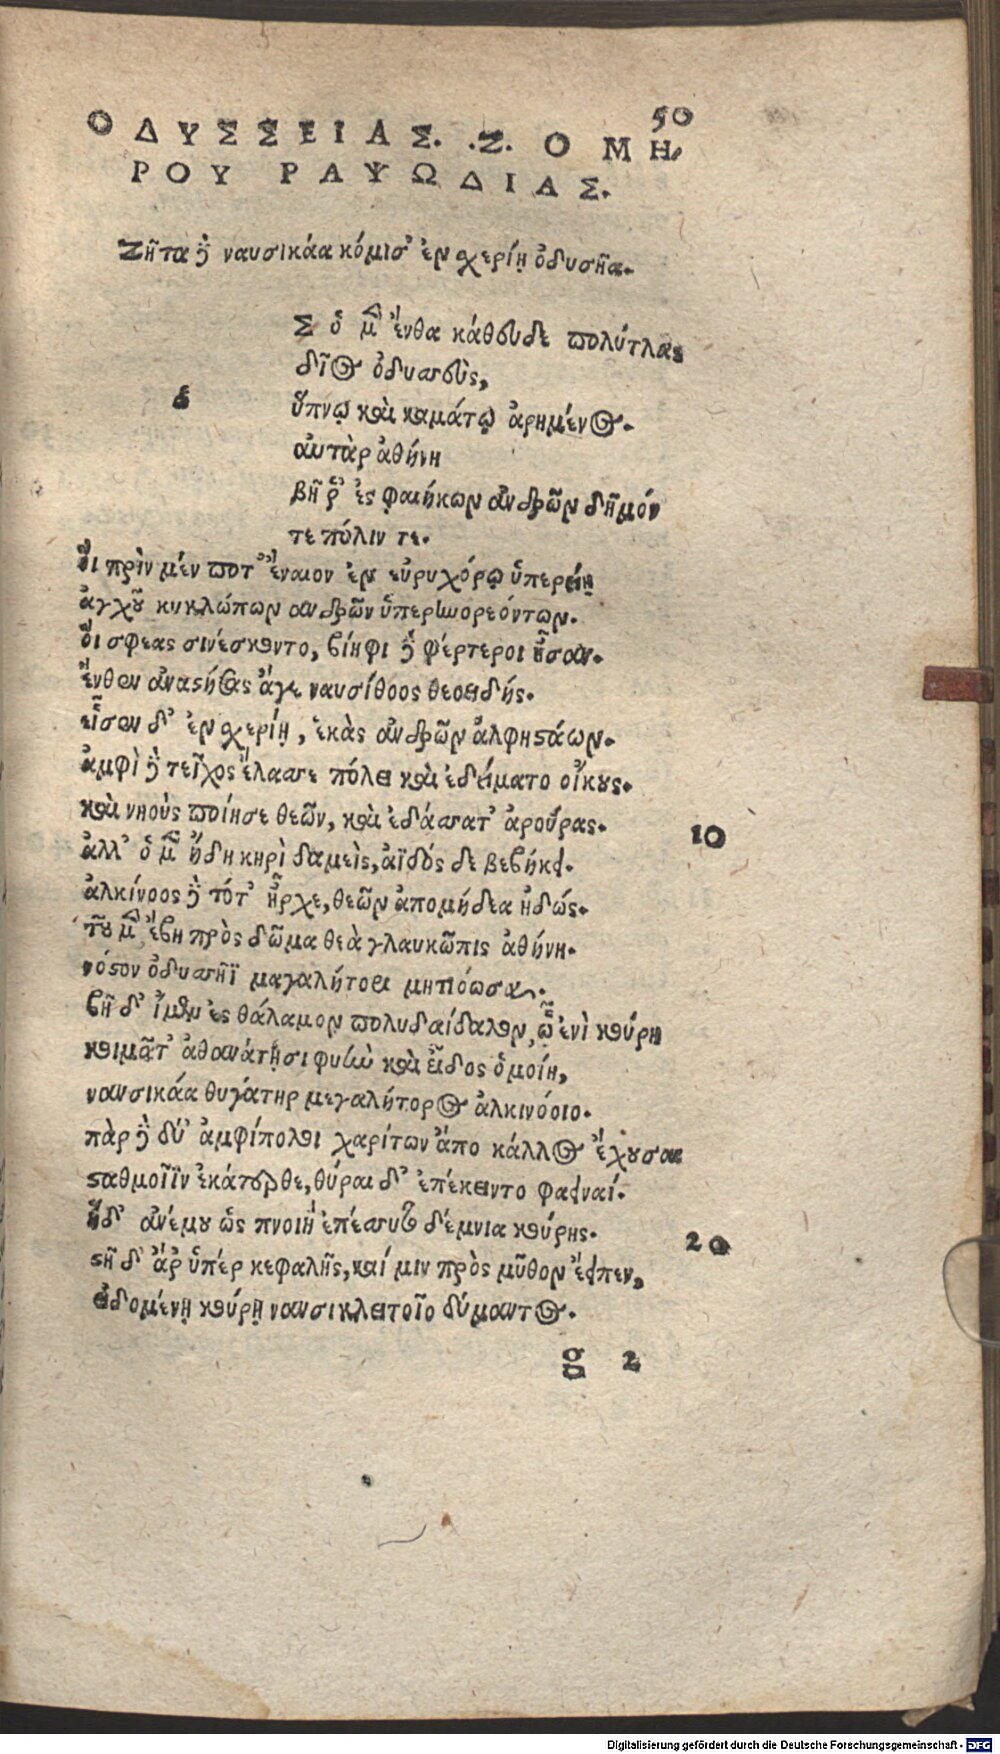 50
ΟΔΥΣΣΕΙΑΣ. .Ζ. ΟΜΗ,
ΡΟΥ ΡΑΨΩΔΙΑΣ.
Ζῆτα δὲ ναυσικάα κόμισ' ἐν σχερίῃ ὀδυσῆα.
Σ ὁ μὲν ἔνθα κάθευδε πολύτλας
δῖος ὀδυσσεὺς,
ὕπνῳ καὶ καμάτῳ ἀρημένος.
αὐτὰρ ἀθήνη
βῆ ῥ' ἐς φαιήκων ἀνδρῶν δῆμόν
τε πόλιν τε.
Οἳ πρὶν μέν ποτ' ἔναιον ἐν εὐρυχόρῳ ὑπερείῃ
ἀγχοῦ κυκλώπων ἀνδρῶν ὑπερηνορεόντων.
Οἵ σφεας σινέσκοντο, βίηφι δὲ φέρτεροι ἦσαν.
Ἔνθεν ἀναστήσας ἄγε ναυσίθοος θεοειδής.
εἷσεν δ' ἐν σχερίῃ, ἑκὰς ἀνδρῶν ἀλφηστάων.
ἀμφὶ δὲ τεῖχος ἔλασσε πόλει καὶ ἐδείματο οἴκους.
καὶ νηοὺς ποίησε θεῶν, καὶ ἐδάσσατ' ἀρούρας.
10
ἀλλ' ὁ μὲν ἤδη κηρὶ δαμεὶς, ἀϊδός δε βεβήκει.
ἀλκίνοος δὲ τότ' ἦρχε, θεῶν ἀπομήδεα εἰδώς.
τοῦ μὲν ἔβη πρὸς δῶμα θεὰ γλαυκῶπις ἀθήνη.
νόστον ὀδυσσῆϊ μεγαλήτορι μητιόωσα.
βῆ δ' ἴμεν ἐς θάλαμον πολυδαίδαλον, ᾧ ἐνὶ κούρη
κοιμᾶτ' ἀθανάτῃσι φυὴν καὶ εἶδος ὁμοίη,
ναυσικάα θυγάτηρ μεγαλήτορος ἀλκινόοιο.
πὰρ δὲ δύ' ἀμφίπολοι χαρίτων ἄπο κάλλος ἔχουσαι
σταθμοῖϊν ἑκάτερθε, θύραι δ' ἐπέκειντο φαειναί.
Ἡ δ' ἀνέμου ὡς πνοιὴ ἐπέσσυτο δέμνια κούρης.
20
στῆ δ' ἄρ ὑπέρ κεφαλῆς, καί μιν πρὸς μῦθον ἔειπεν,
εἰδομένη κούρῃ ναυσικλειτοῖο δύμαντος.
g 2
Digitalisierung gefördert durch die Deutsche Forschungsgemeinschaft - DFG